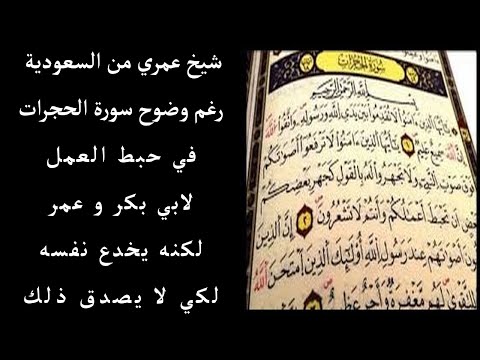 شيخ عمري من السعودية
رغم وضوح سورة الحجرات
في حبط العمل
لابي بكر و عمر
لكنه يخدع نفسه
لكي لا يصدق ذلك
سورة الحجرات
بسم الله الرحمن الرحيم
يا أيها الذين ءامنوا لا تقدموا بين يدي الله ورسوله واتقوا الله
سميع عليم ١ يا أيها الذين ءامنوا لا ترفعوا أصواتكم
فوق صوت النبي ولا تجهروا له بالقول كجهر بعضكم
لبعض أن تحبط أعمالكم وأنتم لا تشعرون ٢ إن الذين
يغضون أصواتهم عند رسول الله أولئك الذين امتحن الله
للتقوى لهم مغفرة وأجر عظيم